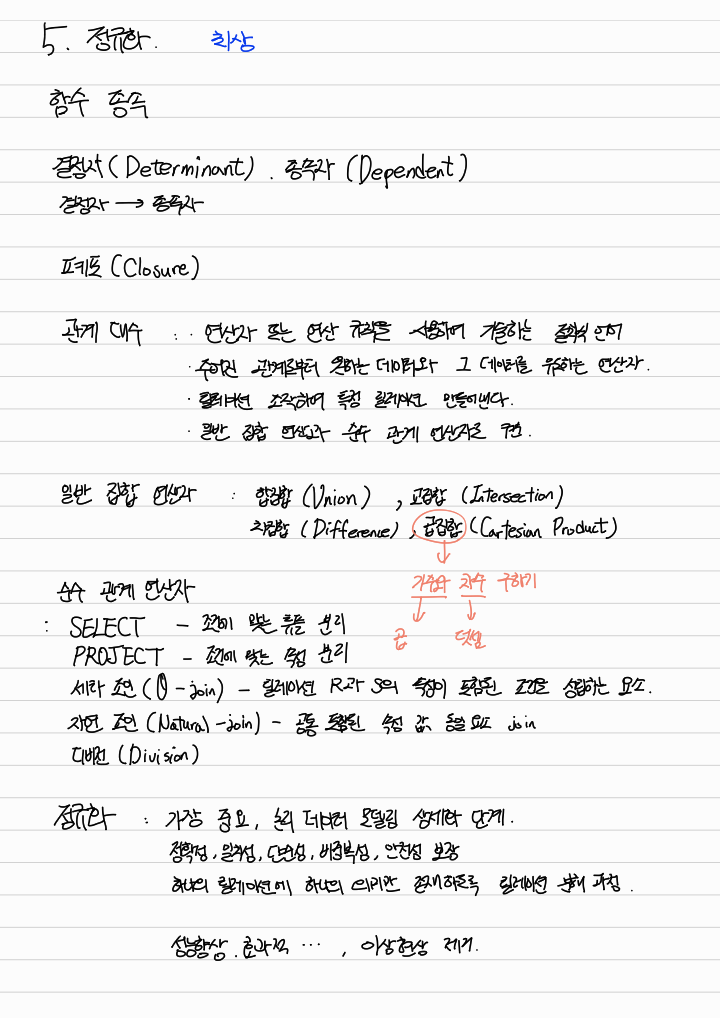 5. 정규화. 최상
함수 종속
결정자 (Determinant). 종속자 (Dependent)
결정자 → 종속자
클로저 (Closure)
관계 대수 : · 연산자 또는 연산 규칙을 사용하여 기술하는 절차식 언어
· 주어진 관계로부터 원하는 데이터와 그 데이터를 유도하는 연산자.
· 릴레이션 조작하여 특정 릴레이션 만들어낸다.
· 일반 집합 연산자와 순수 관계 연산자로 구현.
일반 집합 연산자 : 합집합 (Union), 교집합 (Intersection)
차집합 (Difference), 곱집합 (Cartesian Product)
가수와 차수 구하기
곱 덧셈
순수 관계 연산자
: SELECT – 조건에 맞는 튜플 분리
PROJECT – 조건에 맞는 속성 분리
세타 조인 (θ-join) – 릴레이션 R과 S의 속성이 포함된 조건을 성립하는 요소.
자연 조인 (Natural-join) – 공통 포함된 속성 값 동일 요소 join
디비전 (Division)
정규화 : 가장 중요, 논리 데이터 모델링 상세화 단계.
정확성, 일치성, 단순성, 비중복성, 안전성 보장
하나의 릴레이션에 하나의 의미만 존재하도록 릴레이션 분해 과정.
성능향상. 효과적 ⋯, 이상현상 제거.